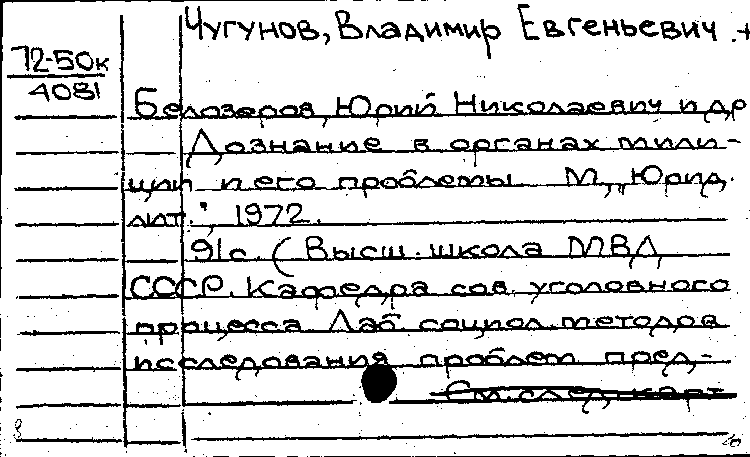 Чугунов, Владимир Евгеньевич. +
72-50к
4081
Белозеров, Юрий Николаевич и др
Дознание в органах мили-
ции и его проблемы М., „Юрид.
лит.", 1972.
91 с. (Высш. школа МВД
СССР. Кафедра сов. уголовного
процесса Лаб социол. методов
исследования проблем пред-
См. след. карт